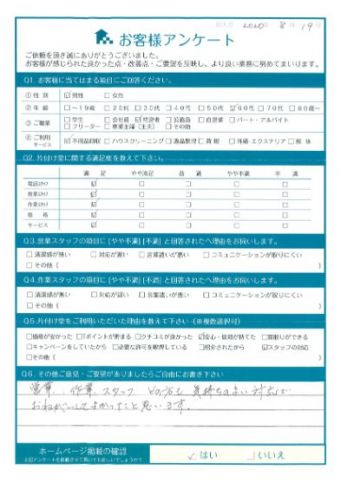 2020年 8月 19日
お客様アンケート
ご依頼を頂き誠にありがとうございました。
お客様が感じられた良かった点・改善点・ご要望を反映し、より良い業務に努めてまいります。
Q1. お客様に当てはまる項目にご回答ください。
① 性 別 ☑男性 □女性
② 年 齢 □〜19歳 □20代 □30代 □40代 □50代 ☑60代 □70代 □80歳〜
③ ご職業 □学生 □会社員 ☑経営者 □公務員 □自営業 □パート・アルバイト
□フリーター □専業主婦(主夫) □その他
④ ご利用サービス ☑不用品回収 □ハウスクリーニング □遺品整理 □買取 □外構・エクステリア □解体
Q2. 片付け堂に関する満足度を教えて下さい。
満 足 やや満足 普 通 やや不満 不 満
電話対応 ☑ □ □ □ □
営業対応 ☑ □ □ □ □
作業対応 ☑ □ □ □ □
価 格 ☑ □ □ □ □
サービス ☑ □ □ □ □
Q3. 営業スタッフの項目に [やや不満] [不満] と回答された方へ理由をお伺いします。
□清潔感が無い □対応が遅い □言葉遣いが悪い □コミュニケーションが取りにくい
□その他 ( )
Q4. 作業スタッフの項目に [やや不満] [不満] と回答された方へ理由をお伺いします。
□清潔感が無い □対応が遅い □言葉遣いが悪い □コミュニケーションが取りにくい
□その他 ( )
Q5. 片付け堂をご利用いただいた理由を教えて下さい (※複数選択可)
□価格が安かった □Tポイントが貯まる □クチコミが良かった ☑安心・信頼が持てた □買取りができる
□キャンペーンをしていたから □必要な許可を取得している □紹介されたから ☑スタッフの対応
□その他 ( )
Q6. その他ご意見・ご要望がありましたらご自由にお書き下さい
営業、作業 スタッフ どの方も 気持ちのよい 対応で
おねがいしてよかったと思います。
ホームページ掲載の確認
✓はい □いいえ